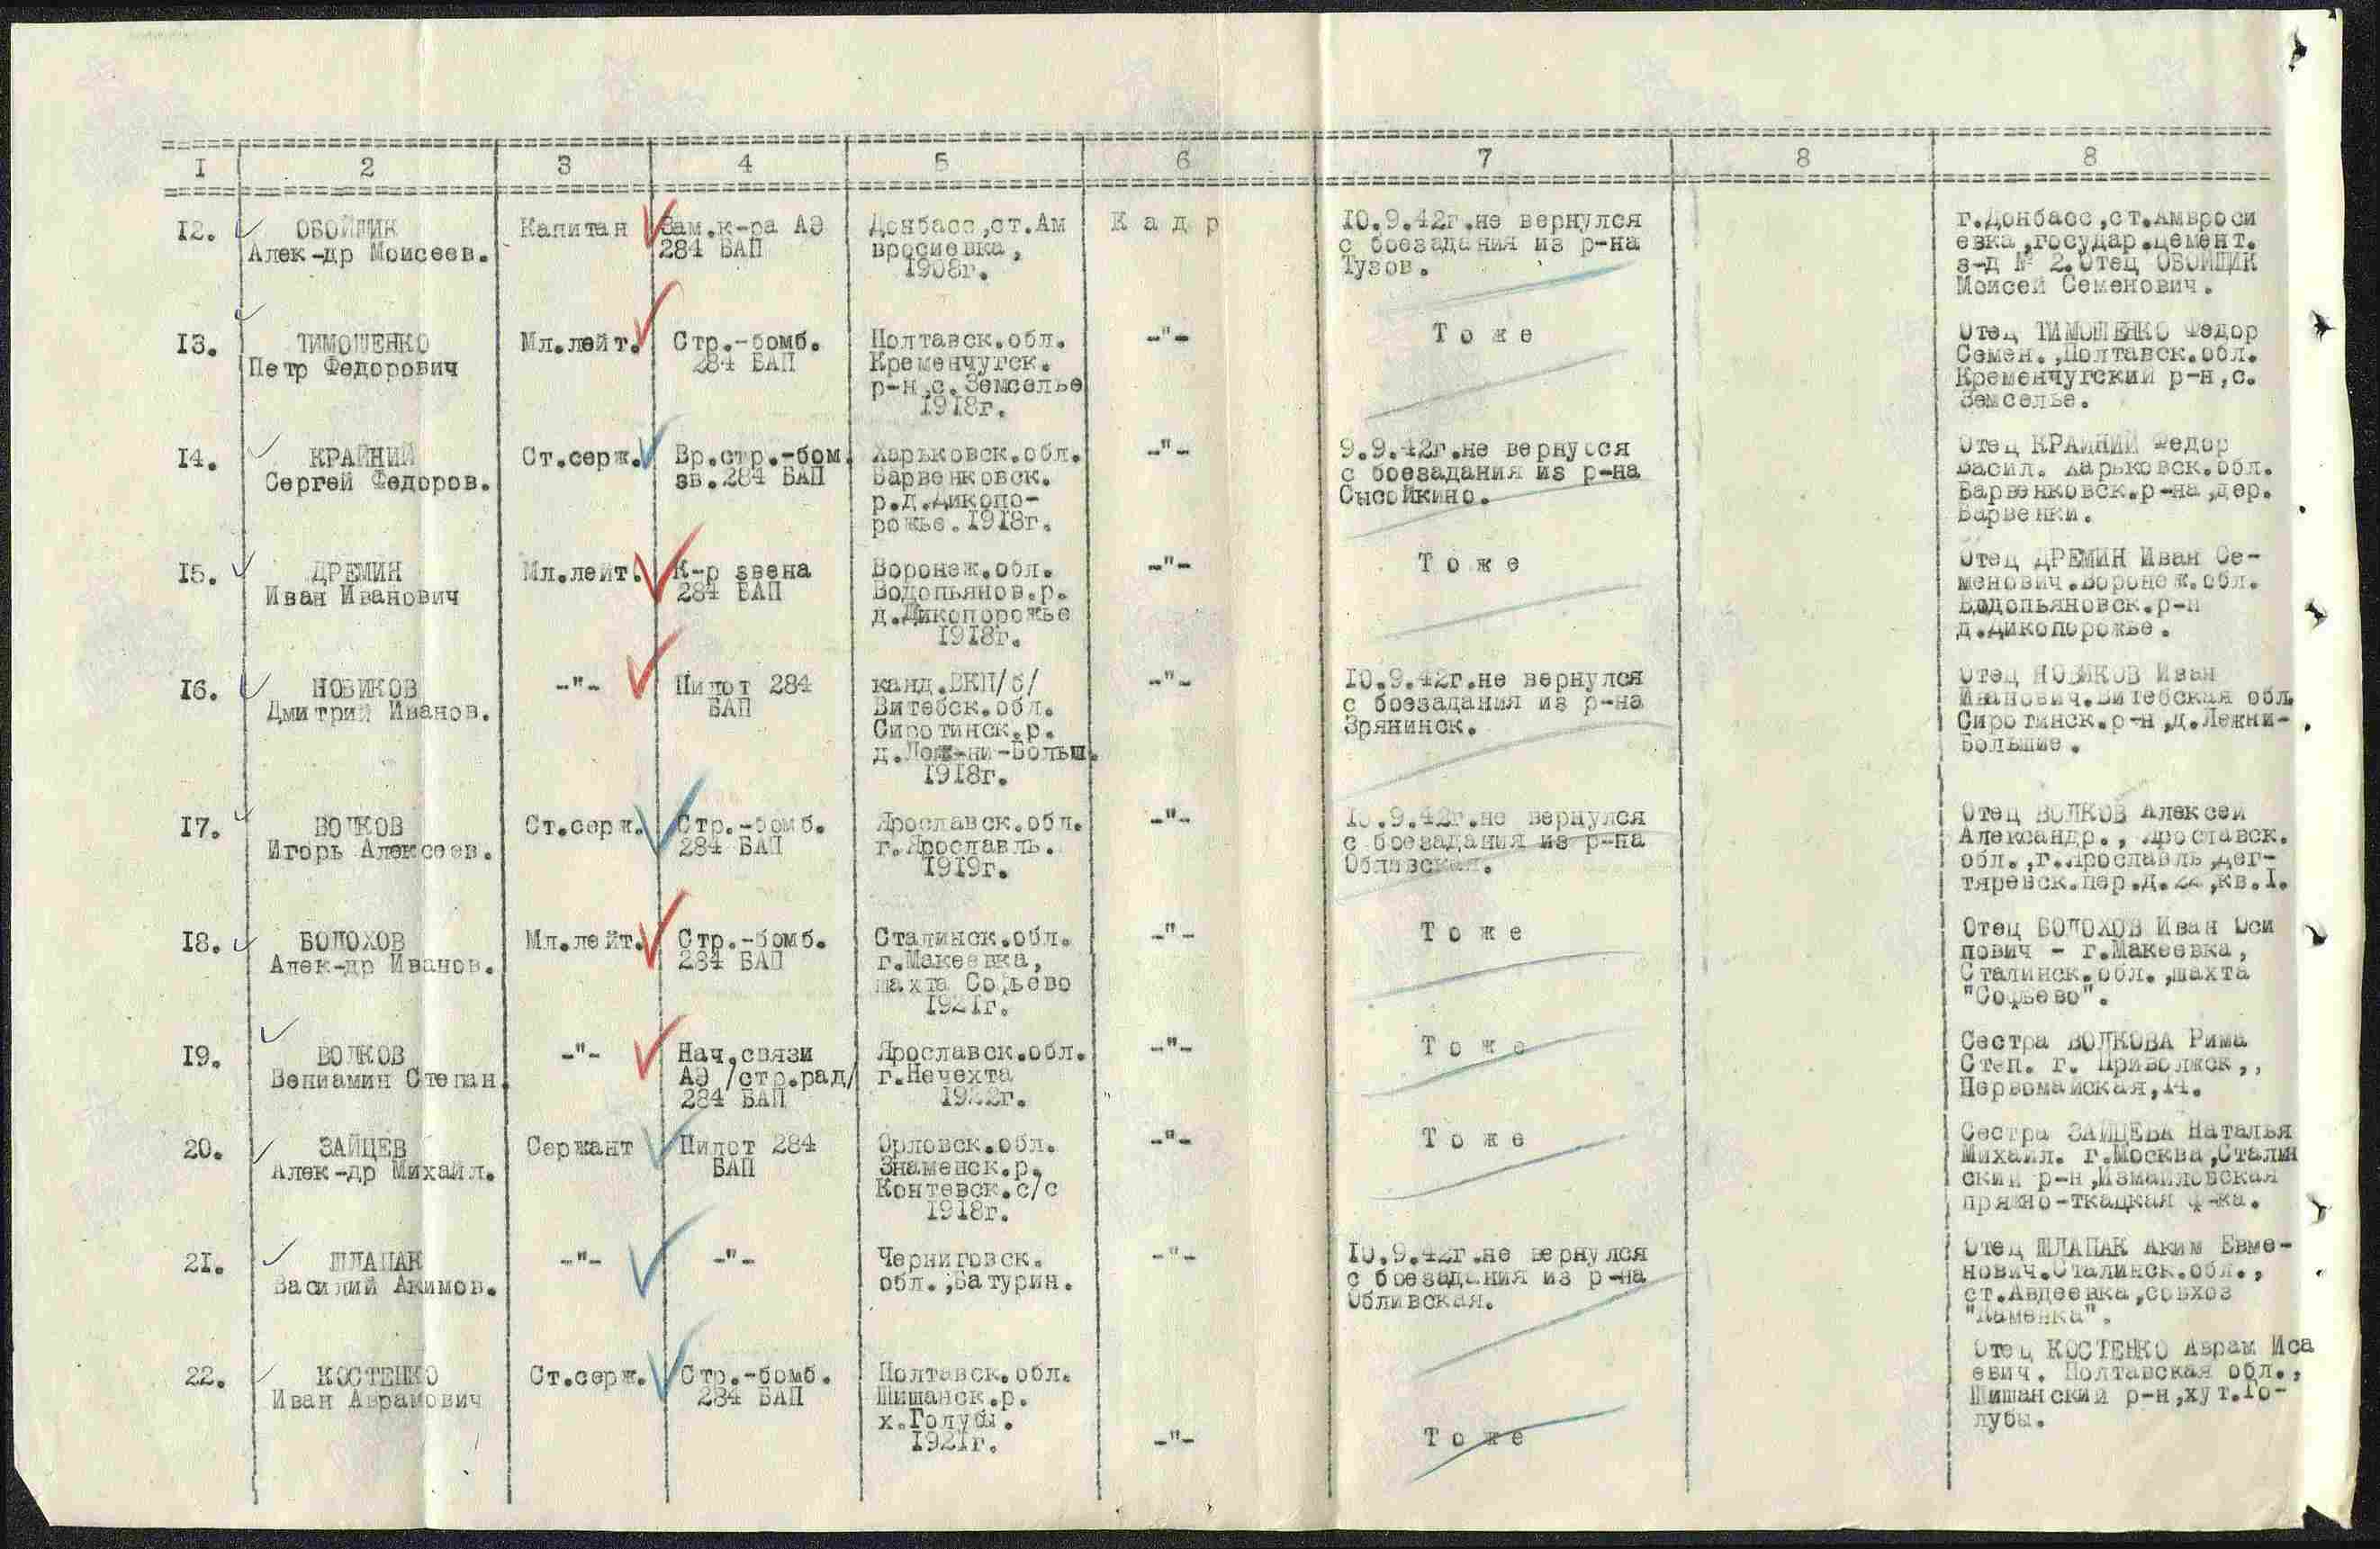 I 2 3 4 5 6 7 8 8
12. ОБОЙЩИК
Алек-др Моисеев.
Капитан
Зам.к-ра АЭ
284 БАП
Донбасс,ст.Ам
вросиевка,
1908г.
К а д р
10.9.42г.не вернулся
с боезадания из р-на
Тузов.
г.Донбасс,ст.Амвроси
евка,государ.цемент.
з-д № 2.Отец ОБОЙЩИК
Моисей Семенович.
13. ТИМОШЕНКО
Петр Федорович
Мл.лейт.
Стр.-бомб.
284 БАП
Полтавск.обл.
Кременчугск.
р-н,с.Земселье
1918г.
-"-
Т о ж е
Отец ТИМОШЕНКО Федор
Семен.,Полтавск.обл.
Кременчугский р-н,с.
Земселье.
14. КРАЙНИЙ
Сергей Федоров.
Ст.серж.
Вр.стр.-бом.
зв.284 БАП
Харьковск.обл.
Барвенковск.
р.д.Дикопо-
рожье.1918г.
-"-
9.9.42г.не вернулся
с боезадания из р-на
Сысойкино.
Отец КРАЙНИЙ Федор
Васил. Харьковск.обл.
Барвенковск.р-на,дер.
Барвенки.
15. ДРЕМИН
Иван Иванович
Мл.лейт.
К-р звена
284 БАП
Воронеж.обл.
Водопьянов.р.
д.Дикопорожье
1918г.
-"-
Т о ж е
Отец ДРЕМИН Иван Се-
менович.Воронеж.обл.
Водопьяновск.р-н
д.Дикопорожье.
16. НОВИКОВ
Дмитрий Иванов.
-"-
Пилот 284
БАП
канд.ВКП/б/
Витебск.обл.
Сиротинск.р.
д.Лежни-Больш.
1918г.
-"-
10.9.42г.не вернулся
с боезадания из р-на
Зрянинск.
Отец НОВИКОВ Иван
Иванович.Витебская обл.
Сиротинск.р-н,д.Лежни-
Большие.
17. ВОЛКОВ
Игорь Алексеев.
Ст.серж.
Стр.-бомб.
284 БАП
Ярославск.обл.
г.Ярославль.
1919г.
-"-
10.9.42г.не вернулся
с боезадания из р-на
Обливская.
Отец ВОЛКОВ Алексей
Александр., Ярославск.
обл.,г.Ярославль,Дег-
тяревск.пер.д.22,кв.I.
18. БОЛОХОВ
Алек-др Иванов.
Мл.лейт.
Стр.-бомб.
284 БАП
Сталинск.обл.
г.Макеевка,
шахта Софьево
1921г.
-"-
Т о ж е
Отец БОЛОХОВ Иван Оси
пович - г.Макеевка,
Сталинск.обл.,шахта
"Софьево".
19. ВОЛКОВ
Вениамин Степан.
-"-
Нач.связи
АЭ /стр.рад/
284 БАП
Ярославск.обл.
г.Нечехта
1922г.
-"-
Т о ж е
Сестра ВОЛКОВА Рима
Степ. г. Приволжск,,
Первомайская,14.
20. ЗАЙЦЕВ
Алек-др Михайл.
Сержант
Пилот 284
БАП
Орловск.обл.
Знаменск.р.
Контевск.с/с
1918г.
-"-
Т о ж е
Сестра ЗАЙЦЕВА Наталья
Михаил. г.Москва,Сталин
ский р-н,Измайловская
пряжно-ткацкая ф-ка.
21. ШЛАПАК
Василий Акимов.
-"-
-"-
Черниговск.
обл.,Батурин.
-"-
10.9.42г.не вернулся
с боезадания из р-на
Обливская.
Отец ШЛАПАК Аким Евме-
нович.Сталинск.обл.,
ст.Авдеевка,совхоз
"Каменка".
22. КОСТЕНКО
Иван Аврамович
Ст.серж.
Стр.-бомб.
284 БАП
Полтавск.обл.
Шишанск.р.
х.Голубы.
1921г.
-"-
Т о ж е
Отец КОСТЕНКО Аврам Иса
евич. Полтавская обл.,
Шишанский р-н,хут.Го-
лубы.